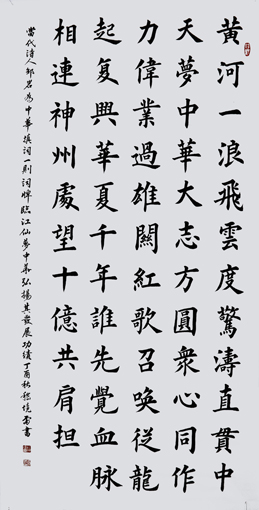 黄河一浪飛雲度驚濤直貫中
天夢中華大志方圓衆心同作
力偉業過雄關紅歌召喚從龍
起复興華夏千年誰先覺血脉
相連神州處望十億共肩担
當代詩人為中華填詞一則詞牌臨江仙夢中華弘揚其發展功績丁酉秋書